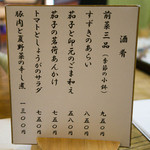 酒肴
前菜三品(季節の小鉢) 九五〇
すずきのあらい 一、二八〇
茄子と卯の元のごま和え 五八〇
茄子の茗荷あんかけ 七五〇
トマトとしょうがのサラダ 七五〇
豚肉と夏野菜のすし煮 一三〇〇円